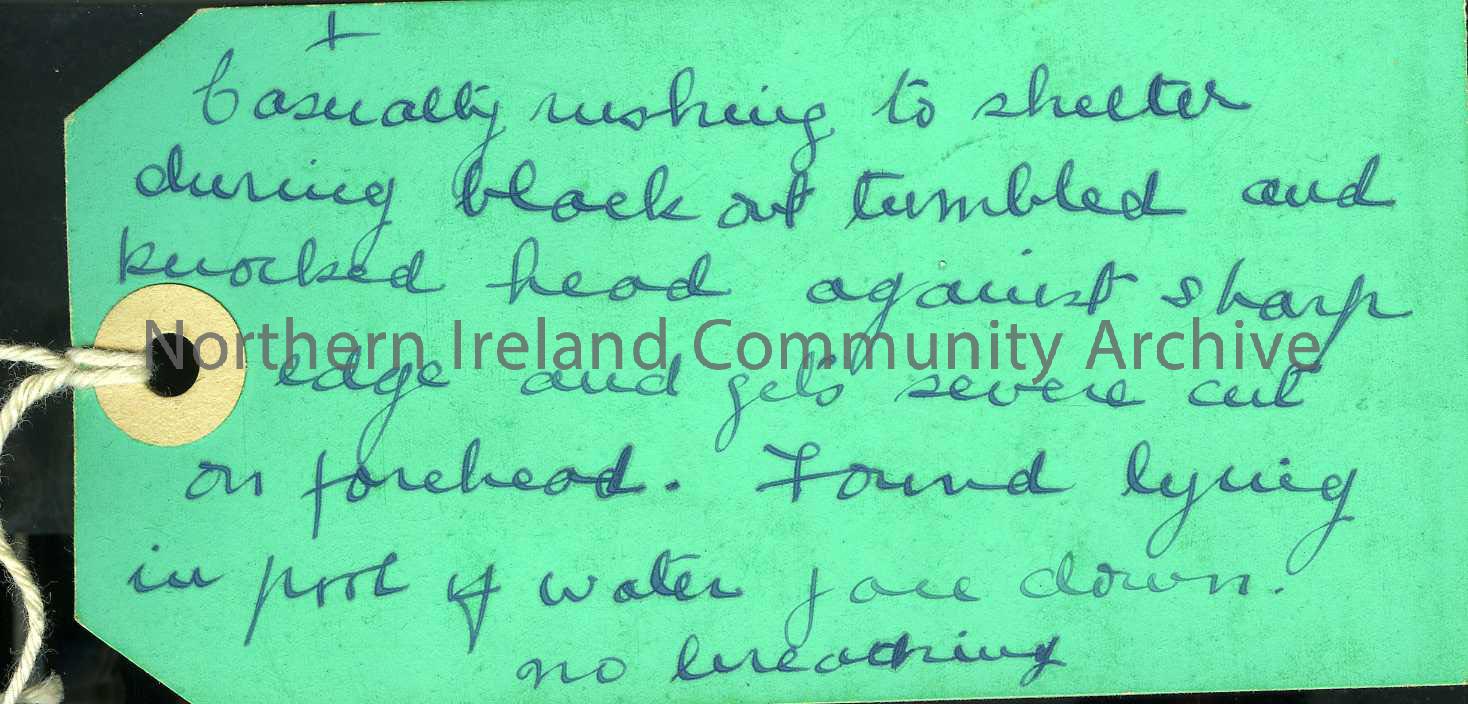 I
Casualty rushing to shelter
during black out tumbled and
knocked head against sharp
Northern Ireland Community Archive
edge and gets severe cut
on forehead. Found lying
in pool of water face down.
no breathing